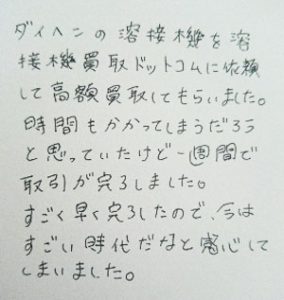 ダイヘンの溶接機を溶
接機買取ドットコムに依頼
して高額買取してもらいました。
時間もかかってしまうだろう
と思っていたけど一週間で
取引が完了しました。
すごく早く完了したので、今は
すごい時代だなと感心して
しまいました。